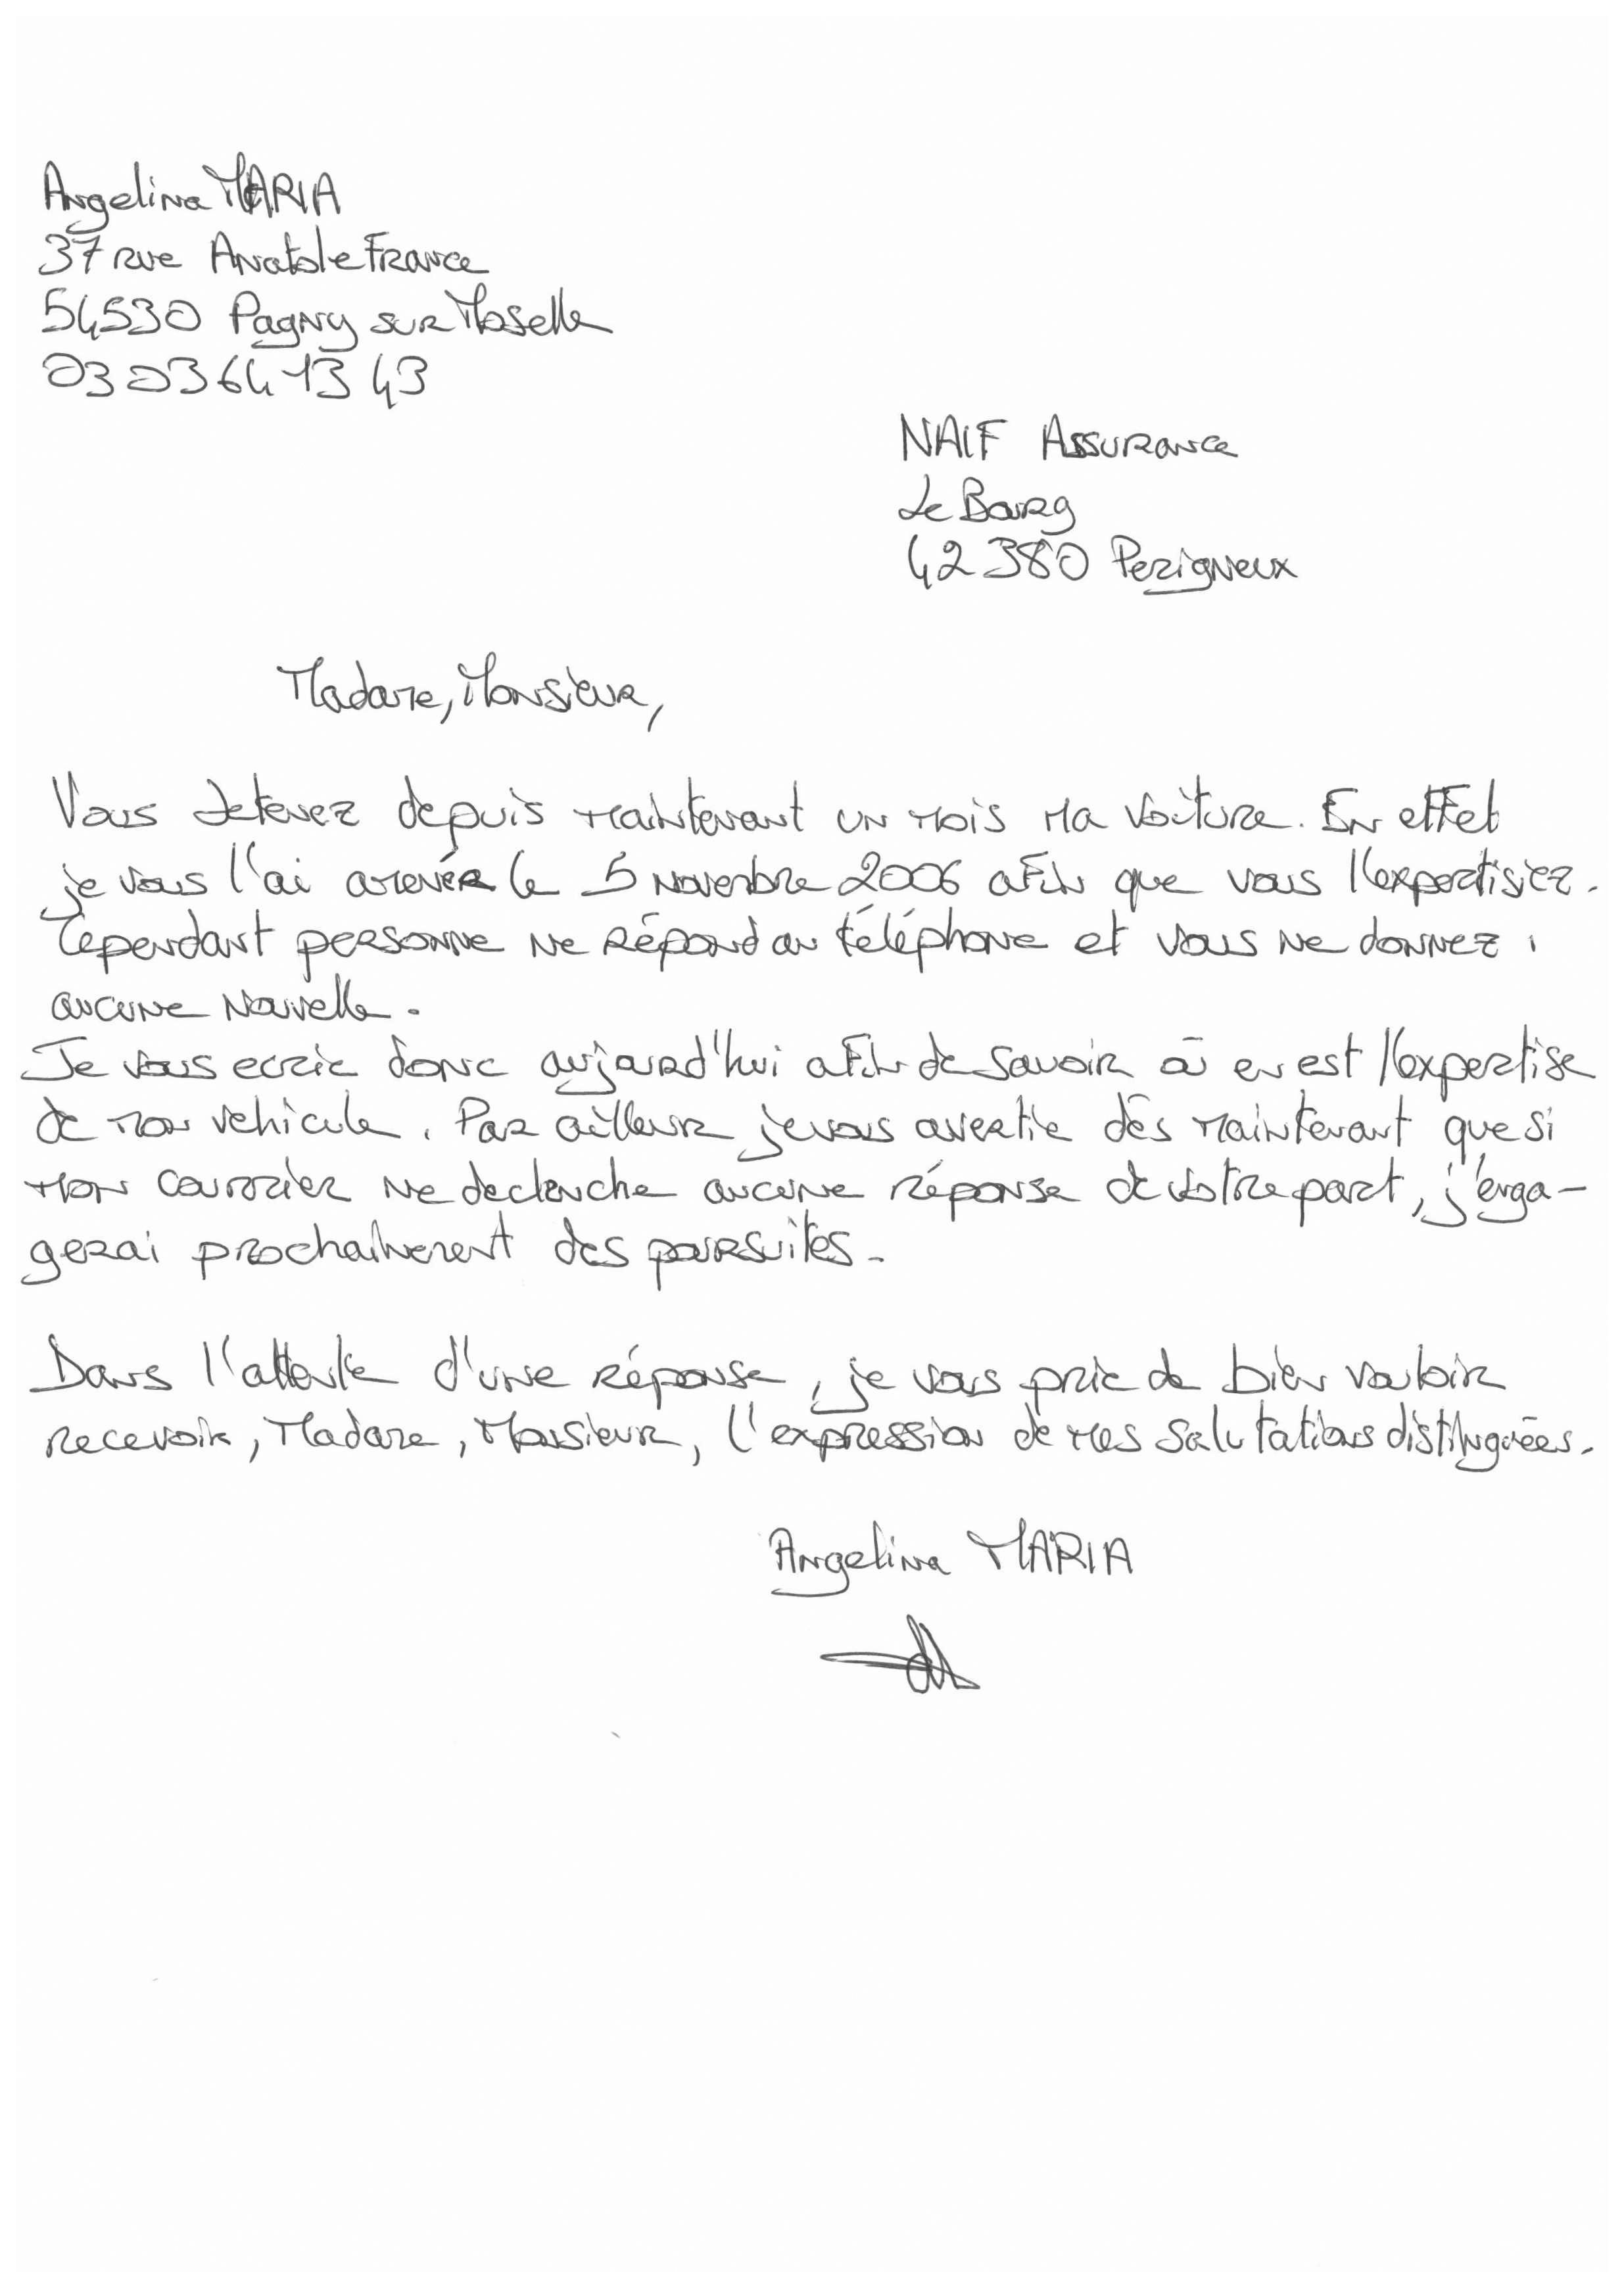 Angelina MARIA
37 rue Anatole France
54530 Pagny sur Moselle
03 03 64 13 43
NAIF Assurance
Le Bourg
42380 Perigneux
Madame, Monsieur,
Vous detenez depuis maintenant un mois ma voiture. En effet
je vous l'ai amenée le 5 novembre 2006 afin que vous l'expertisiez.
Cependant personne ne répond au téléphone et vous ne donnez
aucune nouvelle.
Je vous ecrie donc aujourd'hui afin de savoir où en est l'expertise
de mon vehicule. Par ailleur je vous avertie dès maintenant que si
mon courrier ne declenche aucune réponse de votre part, j'enga-
gerai prochainement des poursuites.
Dans l'attente d'une réponse, je vous prie de bien vouloir
recevoir, Madame, Monsieur, l'expression de mes salutations distinguées.
Angelina MARIA